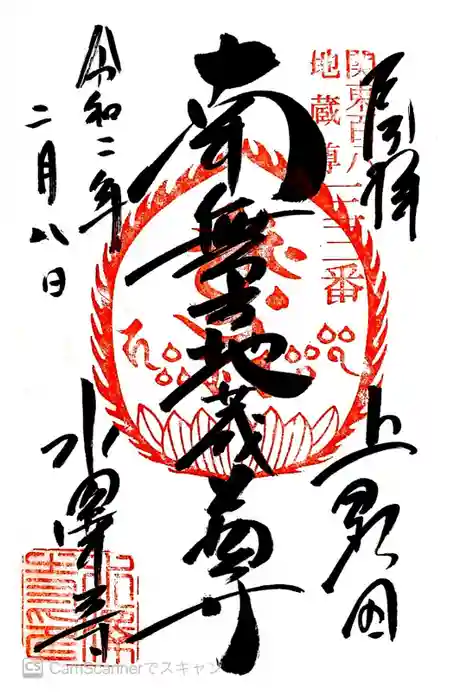 関東百八
地蔵尊
番
拝
上野国
南無六地蔵尊
令和二年
二月八日
水澤寺
CS CamScannerでスキャン